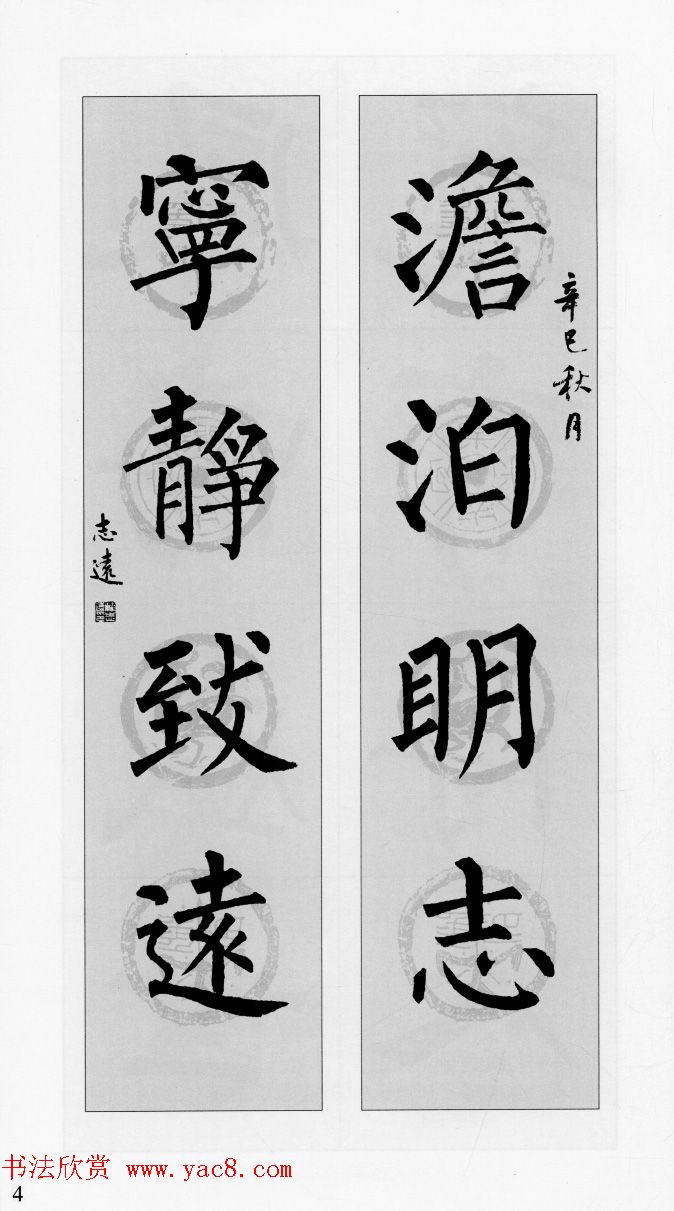 辛巳秋月
澹泊明志
寧靜致遠
志遠
书法欣赏 www.yac8.com
4